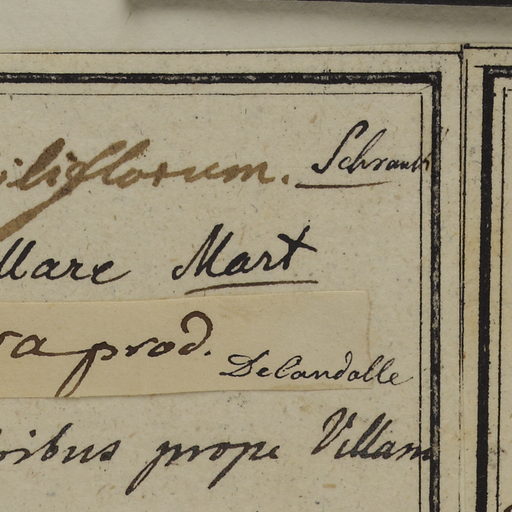 iliflorum. Schrank
llare Mart
ra prod.
DeCandolle
oribus prope Villam